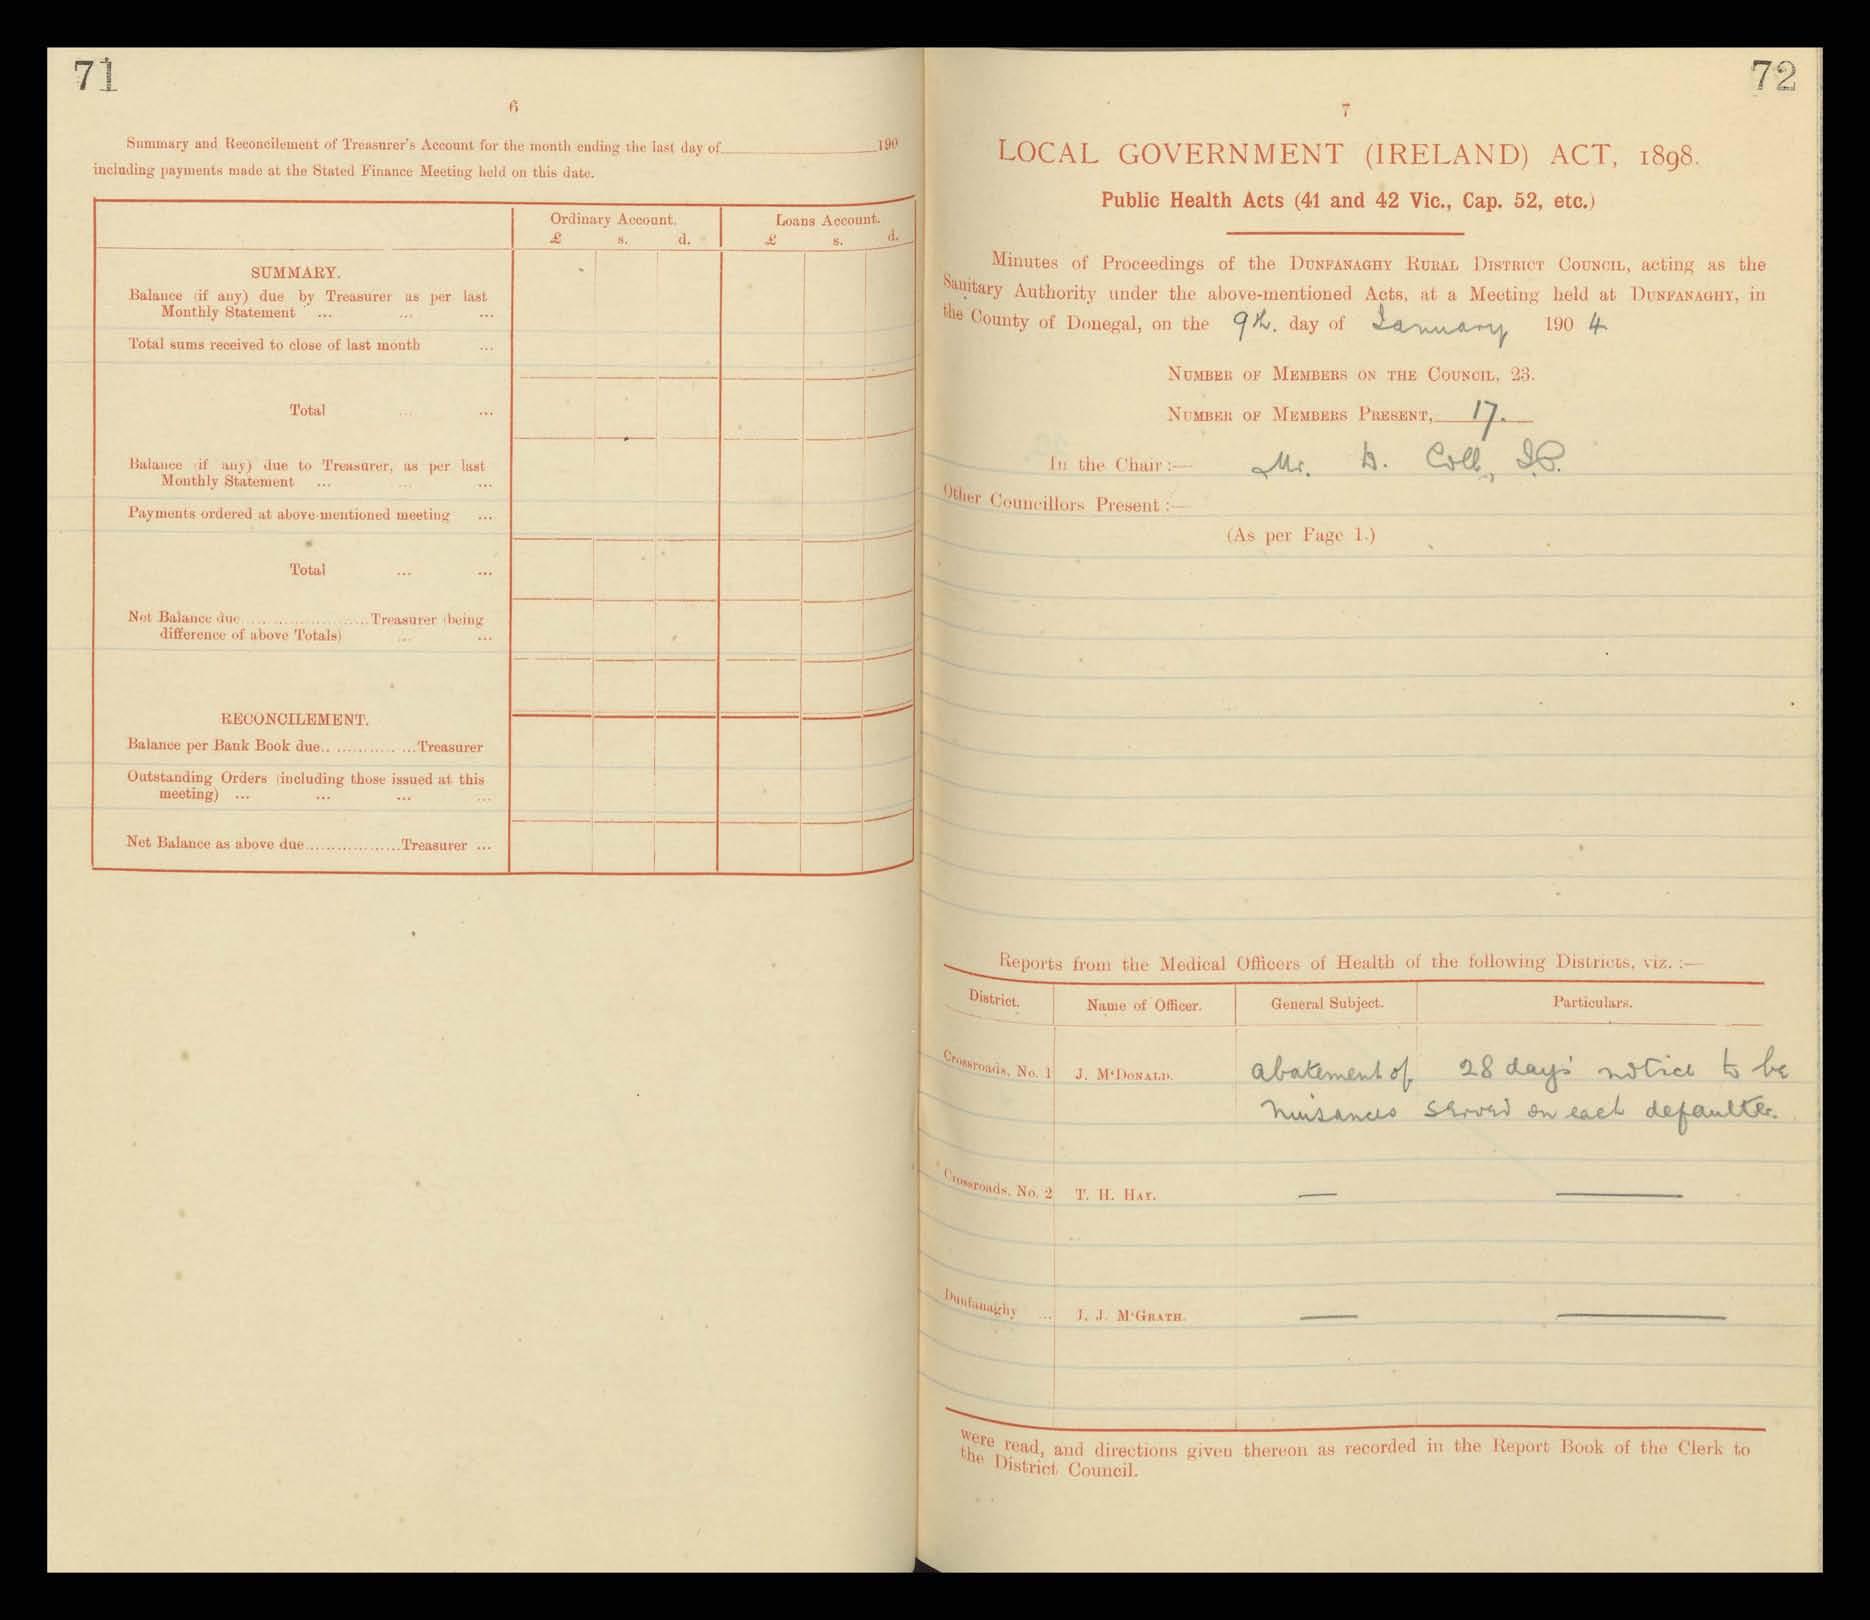 71
6
Summary and Reconcilement of Treasurer's Account for the month ending the last day of 190
including payments made at the Stated Finance Meeting held on this date.
Ordinary Account. Loans Account.
£ s. d. £ s. d.
SUMMARY.
Balance (if any) due by Treasurer as per last
Monthly Statement ... ... ...
Total sums received to close of last month ...
Total ... ...
Balance (if any) due to Treasurer, as per last
Monthly Statement ... ... ...
Payments ordered at above-mentioned meeting ...
Total ... ...
Net Balance due ........................ Treasurer (being
difference of above Totals) ... ...
RECONCILEMENT.
Balance per Bank Book due.. ............ ...Treasurer
Outstanding Orders (including those issued at this
meeting) ... ... ... ...
Net Balance as above due...................Treasurer ...
72
7
LOCAL GOVERNMENT (IRELAND) ACT, 1898.
Public Health Acts (41 and 42 Vic., Cap. 52, etc.)
Minutes of Proceedings of the DUNFANAGHY RURAL DISTRICT COUNCIL, acting as the
Sanitary Authority under the above-mentioned Acts, at a Meeting held at DUNFANAGHY, in
the County of Donegal, on the 9th. day of January 1904
NUMBER OF MEMBERS ON THE COUNCIL, 23.
NUMBER OF MEMBERS PRESENT, 17.
In the Chair:— Mr. D. Coll, J.P.
Other Councillors Present :—
(As per Page 1.)
Reports from the Medical Officers of Health of the following Districts, viz. :—
District. Name of Officer. General Subject. Particulars.
Crossroads, No. 1 J. M'DONALD. abatement of 28 days' notice to be
nuisances served on each defaulter.
Crossroads, No. 2 T. H. HAY. — —
Dunfanaghy ... J. J. M'GRATH. — —
were read, and directions given thereon as recorded in the Report Book of the Clerk to
the District Council.